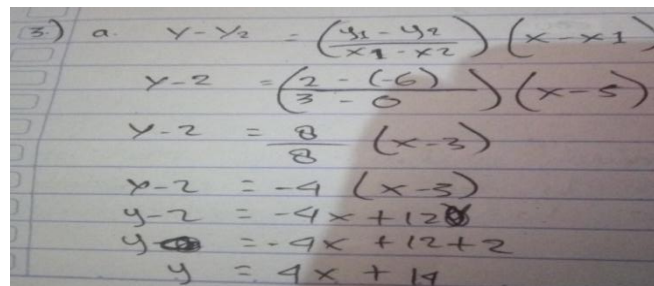 3.) a. y - y2 = (y1 - y2 / x1 - x2) (x - x1)
y - 2 = (2 - (-6) / 3 - 0) (x - 5)
y - 2 = 8/8 (x - 3)
y - 2 = -4 (x - 3)
y - 2 = -4x + 12
y = -4x + 12 + 2
y = 4x + 14